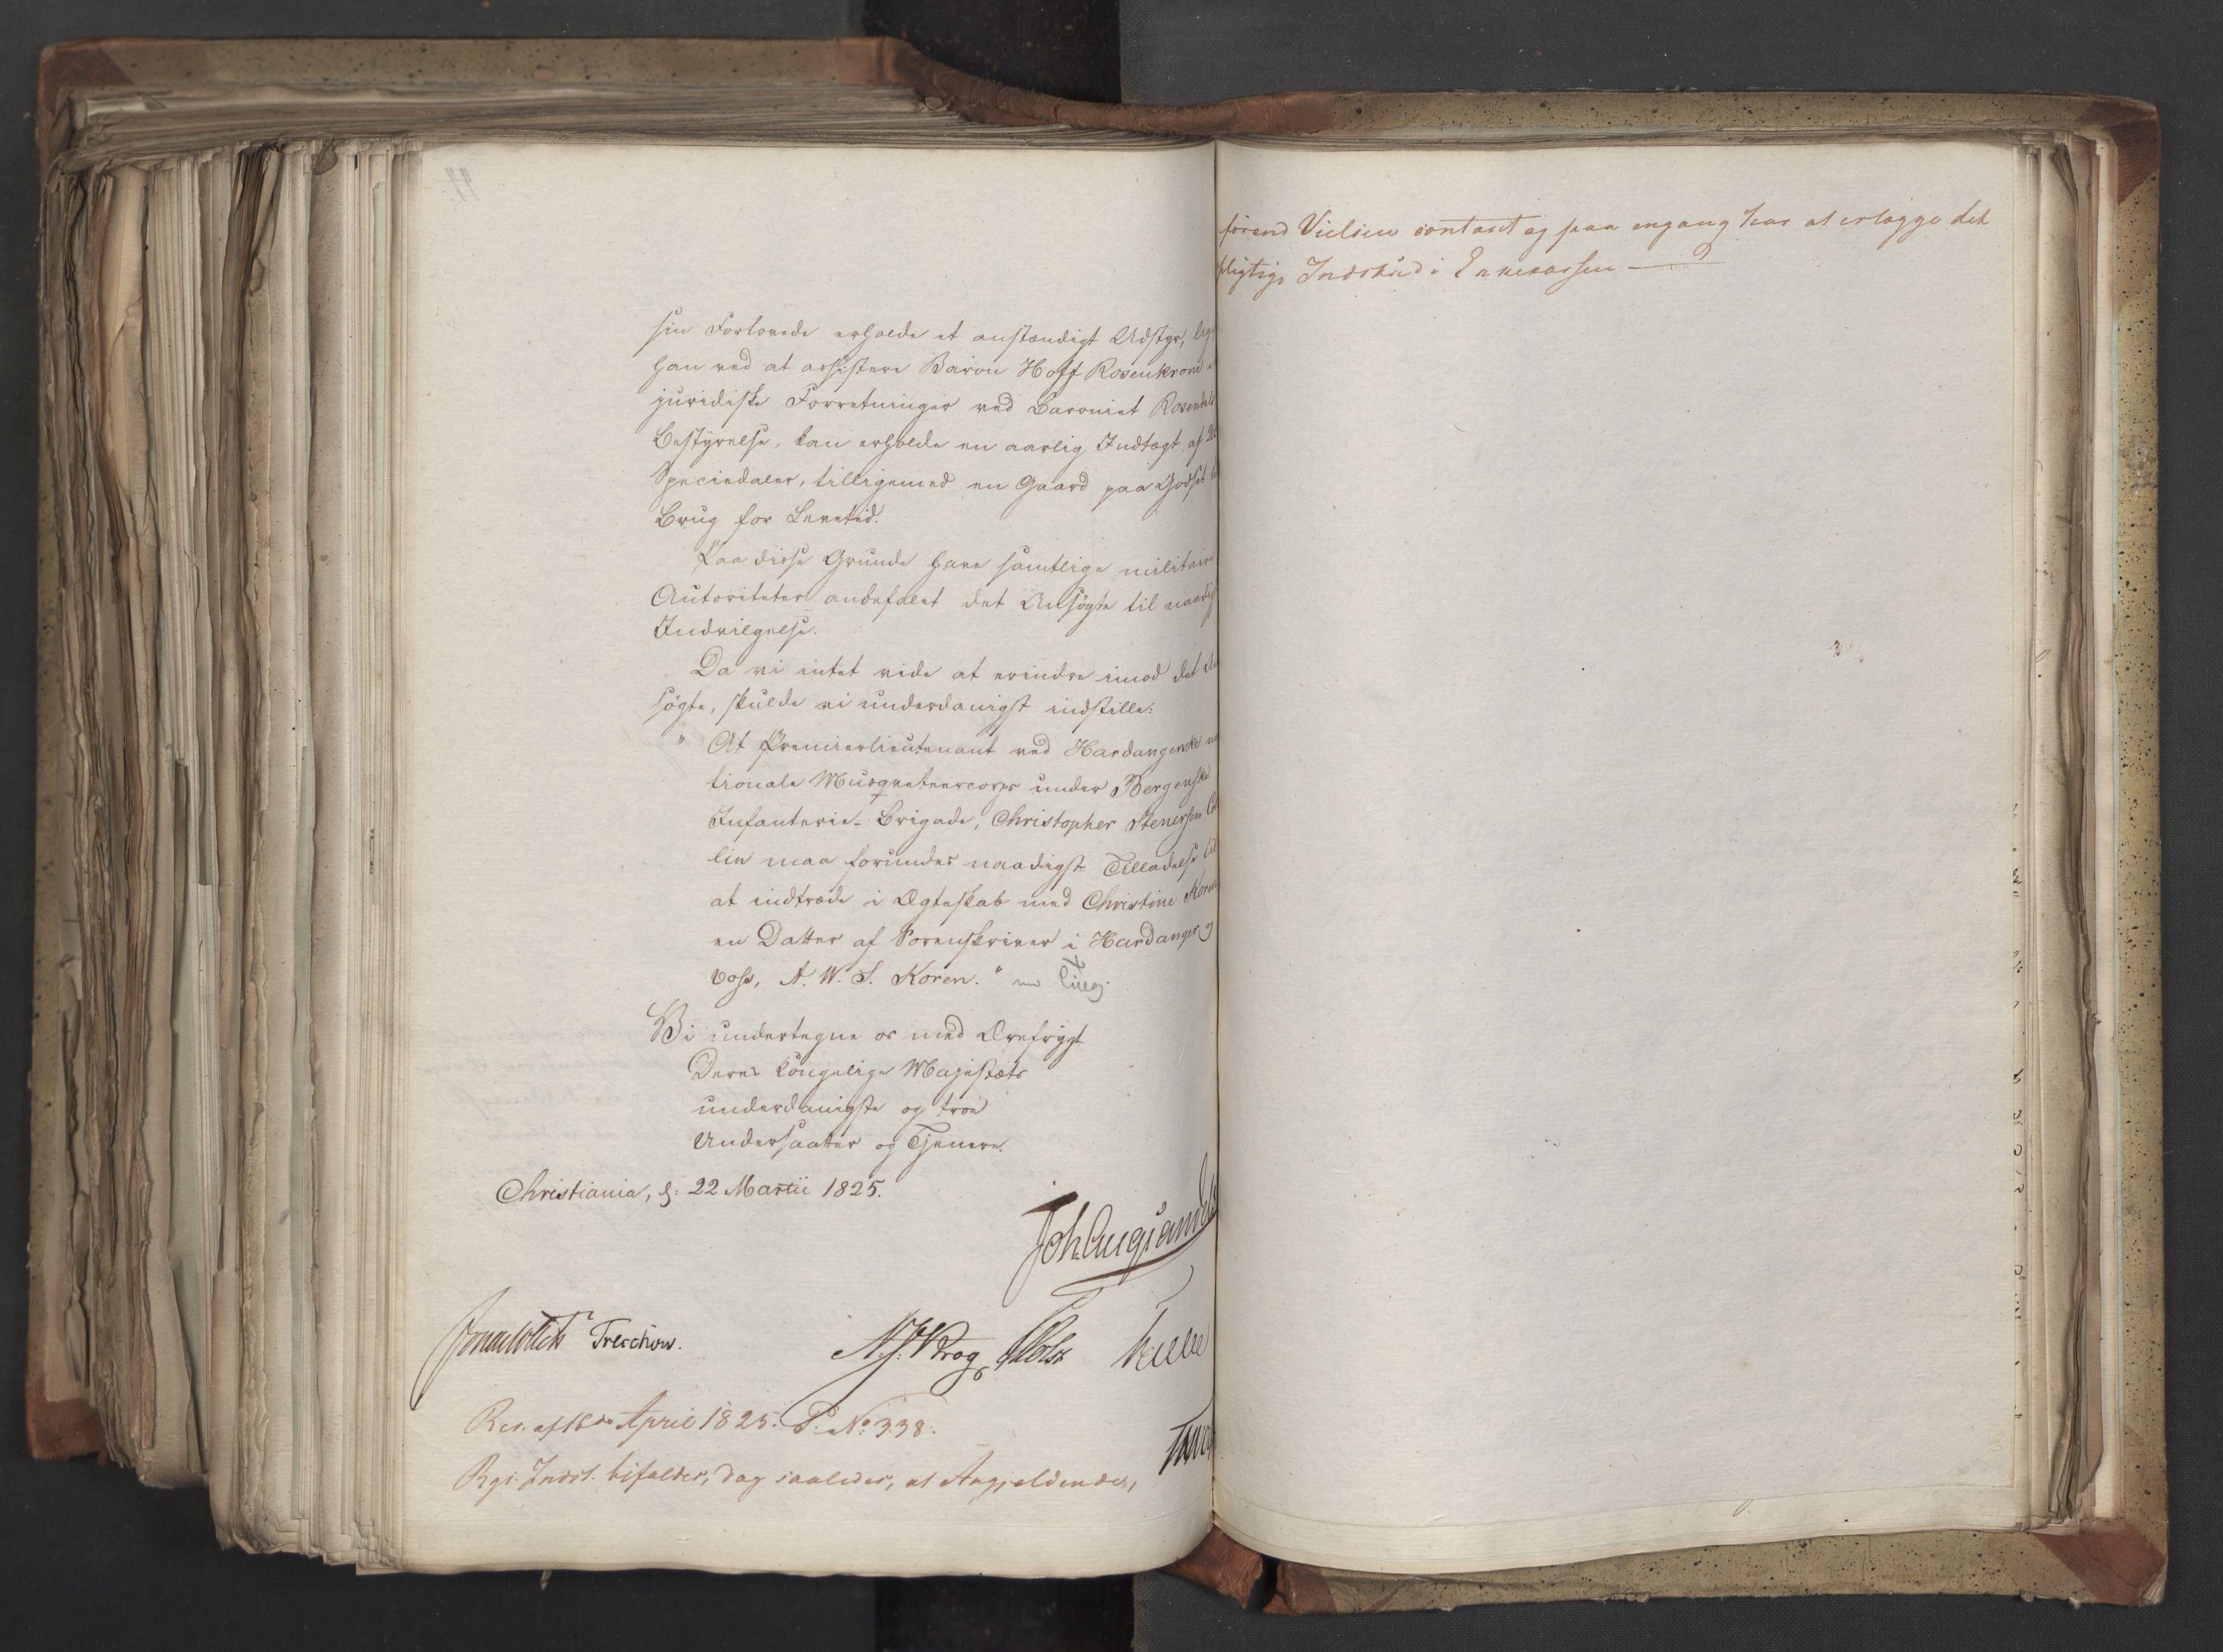 sin Forlovede erholde et anstændigt Udstyr,
han ved at assistere Baron Hoff Rosenkrone
juridiske Forretninger ved Baroniet
Bestyrelse, kan erholde en aarlig Indtægt af
Speciedaler, tilligemed en Gaard paa Godset
Brug for Levetid.
Paa disse Grunde have samtlige militaire
Autoriteter anbefalet det Ansøgte til naadigst
Indvilgelse.
Da vi intet vide at erindre imod det An
søgte, skulde vi underdanigst indstille:
" At Premierlieutenant ved Hardangerske na
tionale Musqueteercorps under Bergenske
Infanterie-Brigade, Christopher Stenersen
lin maa forundes naadigst Tilladelse til
at indtræde i Ægteskab med Christine Koren
en Datter af Sorenskriver i Hardanger og
Voss, A. W. S. Koren. "
Vi undertegne os med Ærefrygt
Deres Kongelige Majestæts
underdanigste og troe
Undersaatter og Tjenere.
Christiania, d: 22 Martii 1825.
Joh. Aug. Sandels
Jonas Collett Treschow.
N. J. Krog P Holst
Res. af 16de April 1825. P: No: 338.
Rgs. Indst. bifaldes, dog saaledes, at Angjeldendes,
förend Vielsen contant og paa engang har at erlægge det
pligtige Indskud i Enkecassen